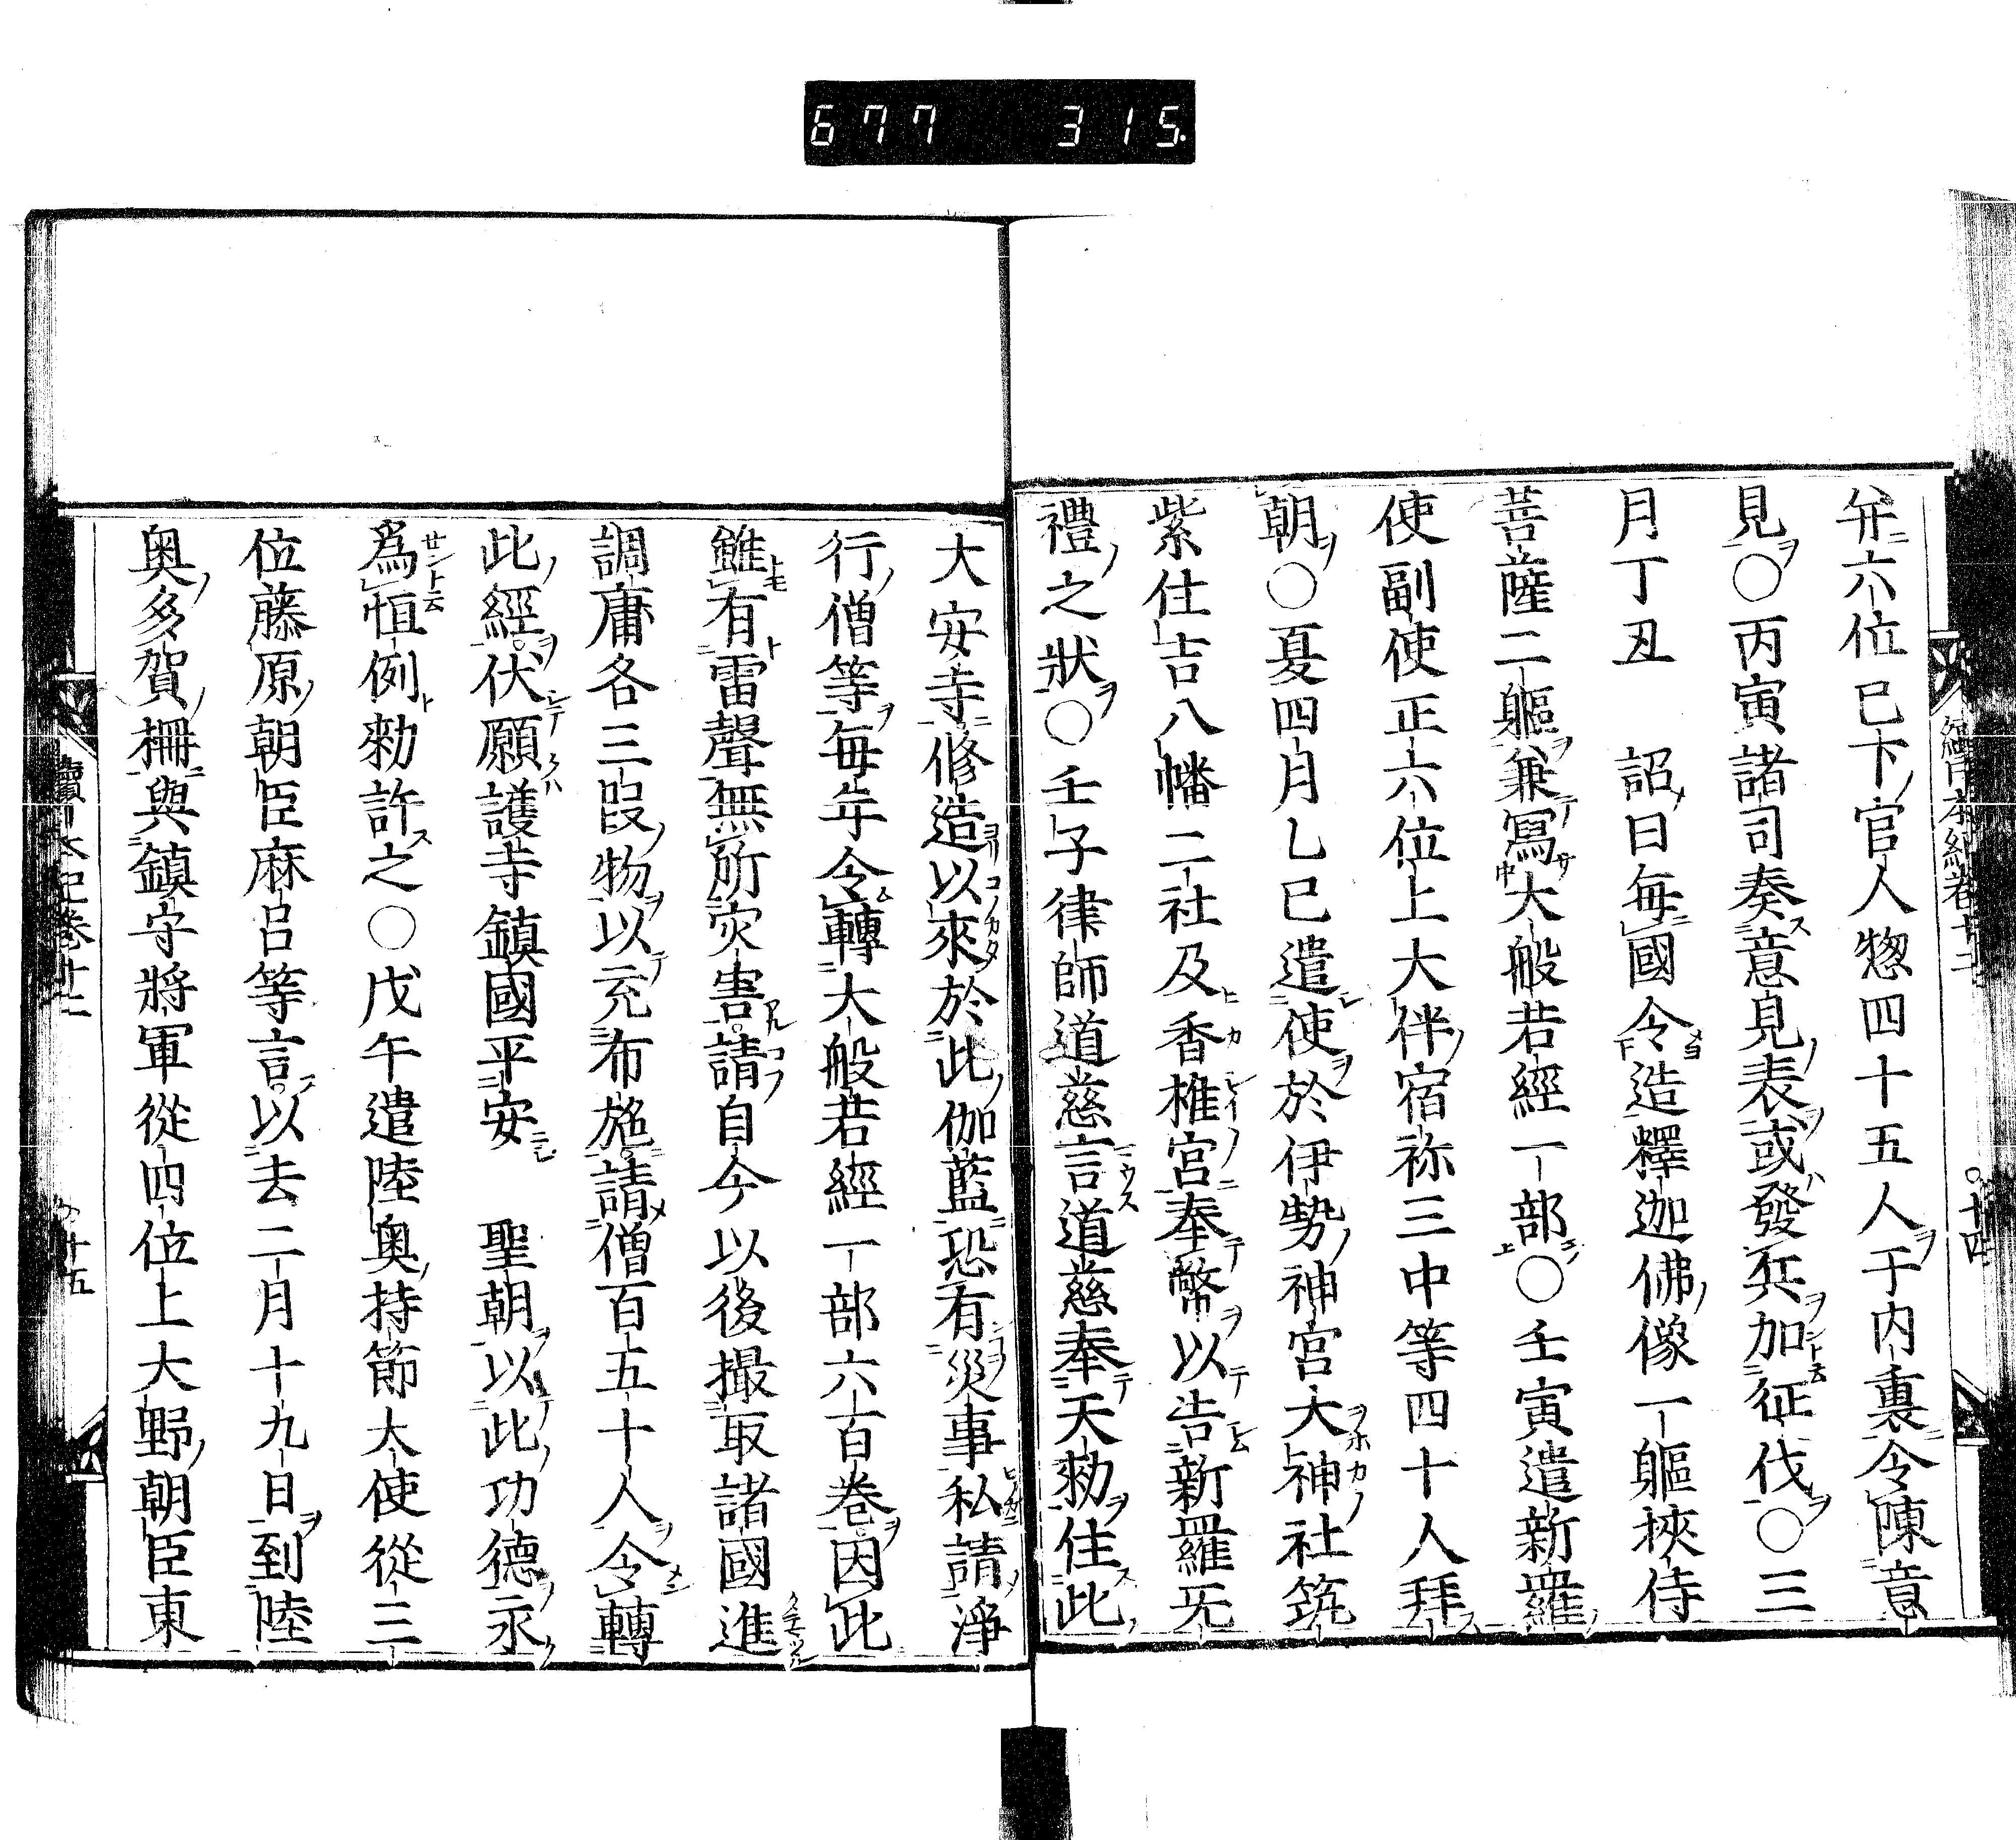 677 315
弁六位巳下官人惣四十五人于内裏令陳意
見○丙寅諸司奏意見表或發兵加征伐○三
月丁丑 詔曰毎國令造釋迦佛像一軀挾侍
菩薩二軀兼寫大般若經一部○壬寅遣新羅
使副使正六位上大伴宿祢三中等四十人拜
朝○夏四月乙巳遣使於伊勢神宮大神社筑
紫住吉八幡二社及香椎宮奉幣以告新羅无
禮之狀○壬子律師道慈言道慈奉天勅住此
大安寺修造以來於此伽藍恐有災事私請淨
行僧等毎年令轉大般若經一部六百卷因此
雖有雷聲無所灾害請自今以後撮取諸國進
調庸各三段物以充布施請僧百五十人令轉
此經伏願護寺鎮國平安 聖朝以此功德永
爲恒例勅許之○戊午遣陸奥持節大使從三
位藤原朝臣麻呂等言以去二月十九日到陸
奥多賀柵與鎮守將軍從四位上大野朝臣東
續日本紀卷十二
十四
十五